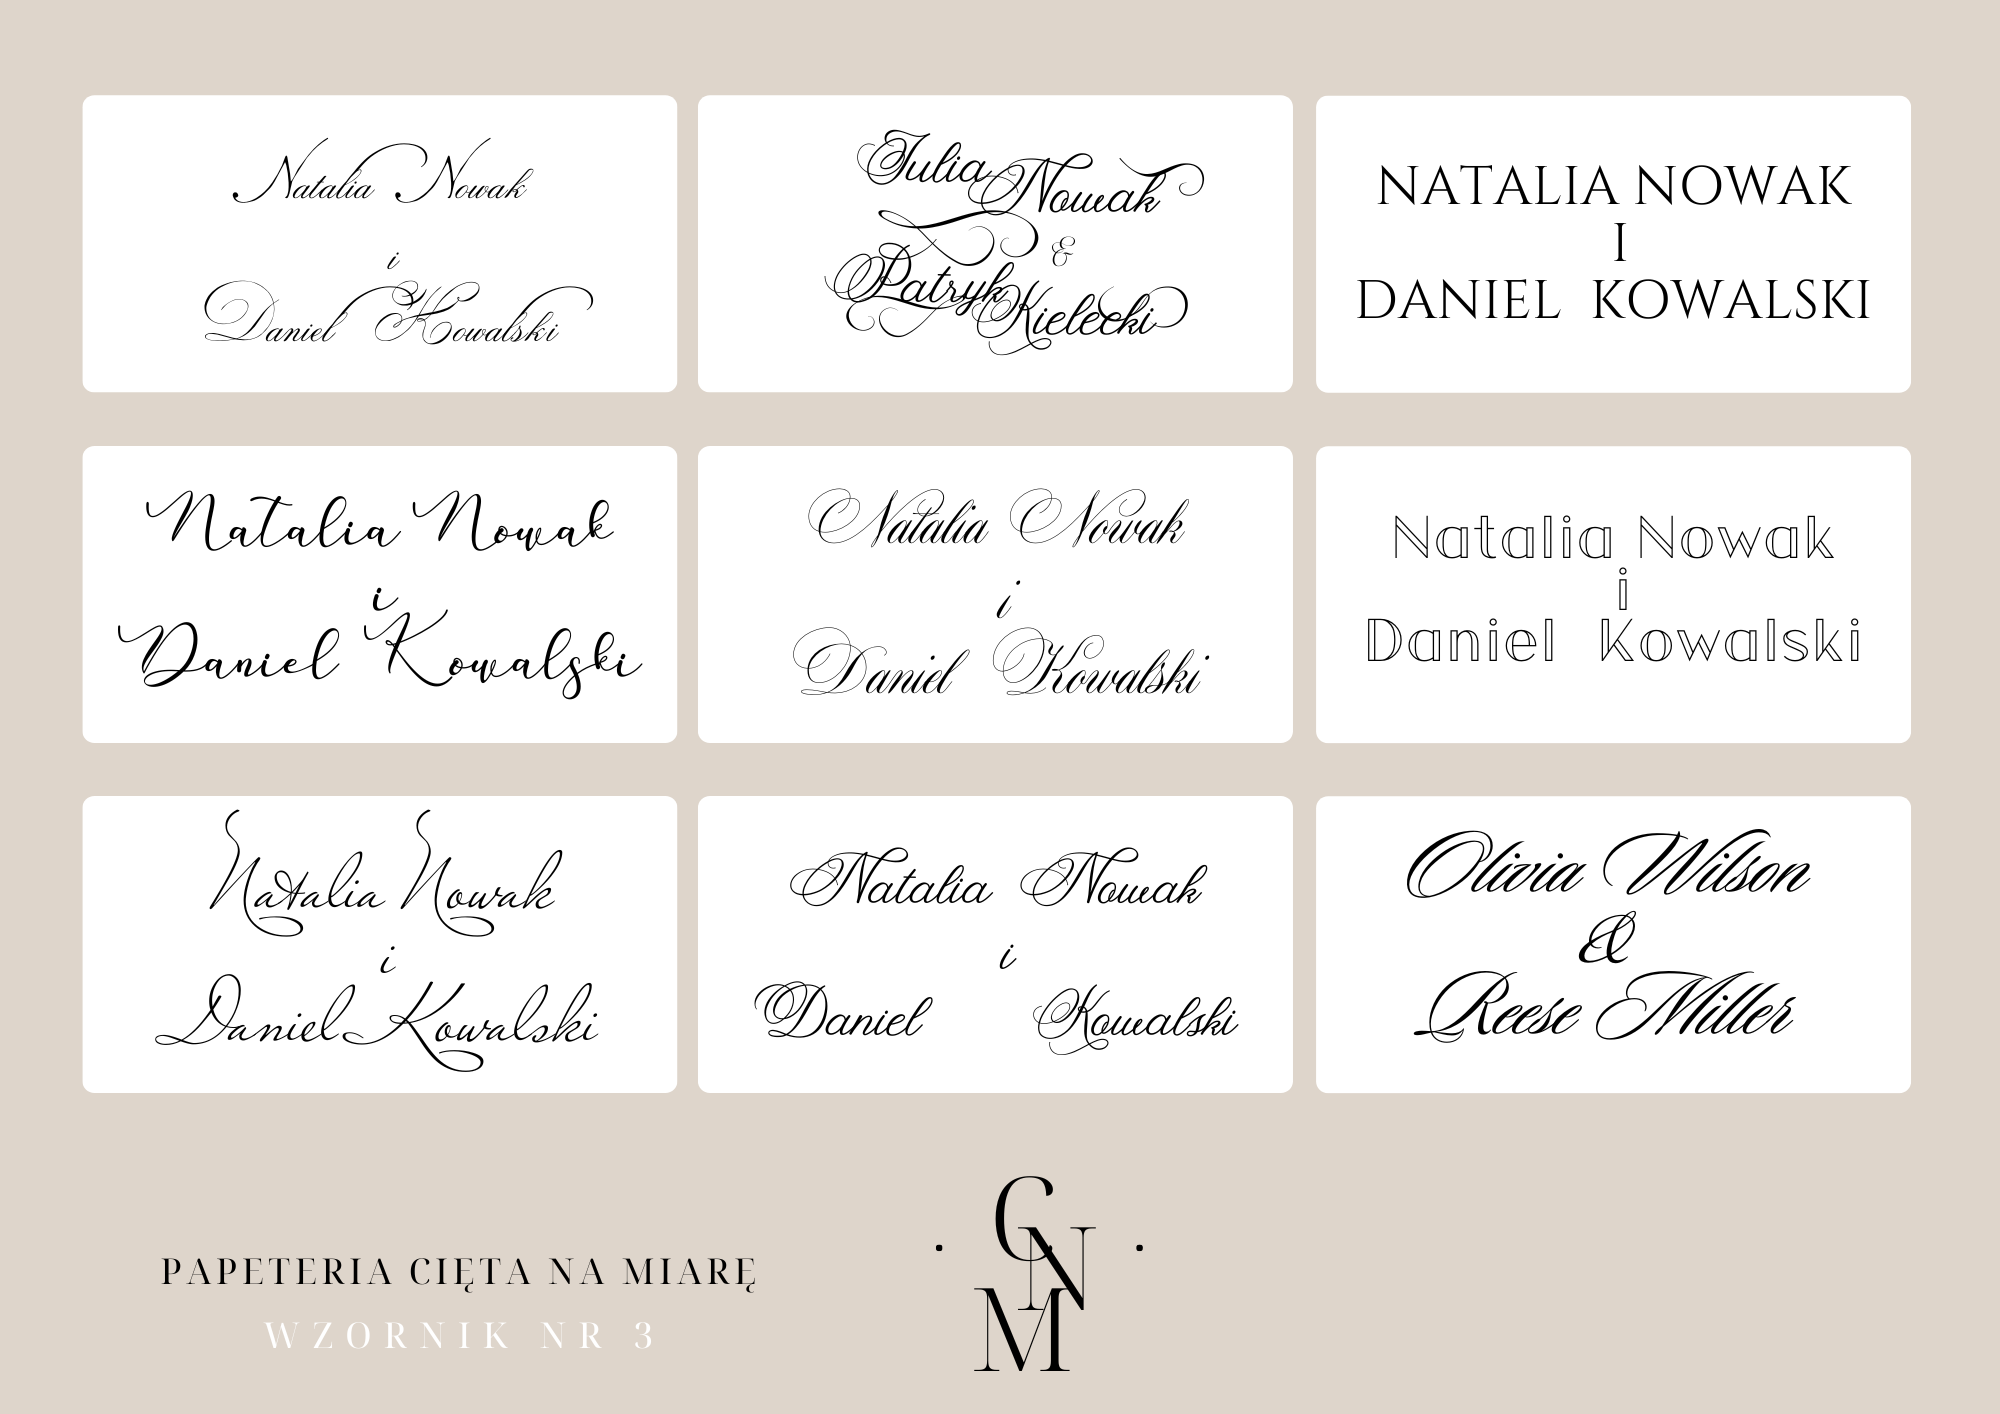 Natalia Nowak
i
Daniel Kowalski
Julia Nowak
&
Patryk Kielecki
NATALIA NOWAK
I
DANIEL KOWALSKI
Natalia Nowak
i
Daniel Kowalski
Natalia Nowak
i
Daniel Kowalski
Natalia Nowak
i
Daniel Kowalski
Natalia Nowak
i
Daniel Kowalski
Natalia Nowak
i
Daniel Kowalski
Olivia Wilson
&
Reese Miller
PAPETERIA CIĘTA NA MIARĘ
WZORNIK NR 3
· CNM ·